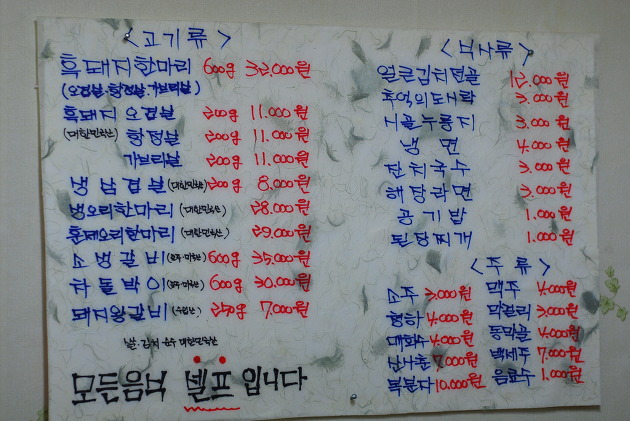 <고기류>
흑돼지한마리 600g 32,000원
(오겹살.항정살.가브리살)
흑돼지 오겹살 200g 11.000원
(대한민국산) 항정살 200g 11.000원
가브리살 200g 11.000원
생삼겹살 (대한민국산) 200g 8.000원
생오리한마리 (대한민국산) 28.000원
훈제오리한마리 (대한민국산) 29.000원
소생갈비 600g 35.000원
차돌박이 600g 30.000원
돼지왕갈비 (수입산) 250g 7.000원
쌀.김치 대한민국산
모든음식 셀프입니다
<식사류>
얼큰김치전골 12.000원
추억의도시락 3.000원
사골누룽지 3.000원
냉면 4.000원
잔치국수 3.000원
해장라면 3.000원
공기밥 1.000원
된장찌개 1.000원
<주류>
소주 3.000원 맥주 4.000원
청하 4.000원 막걸리 3.000원
매화수 4.000원 동막골 4.000원
산사춘 7.000원 백세주 7.000원
복분자 10.000원 음료수 1.000원